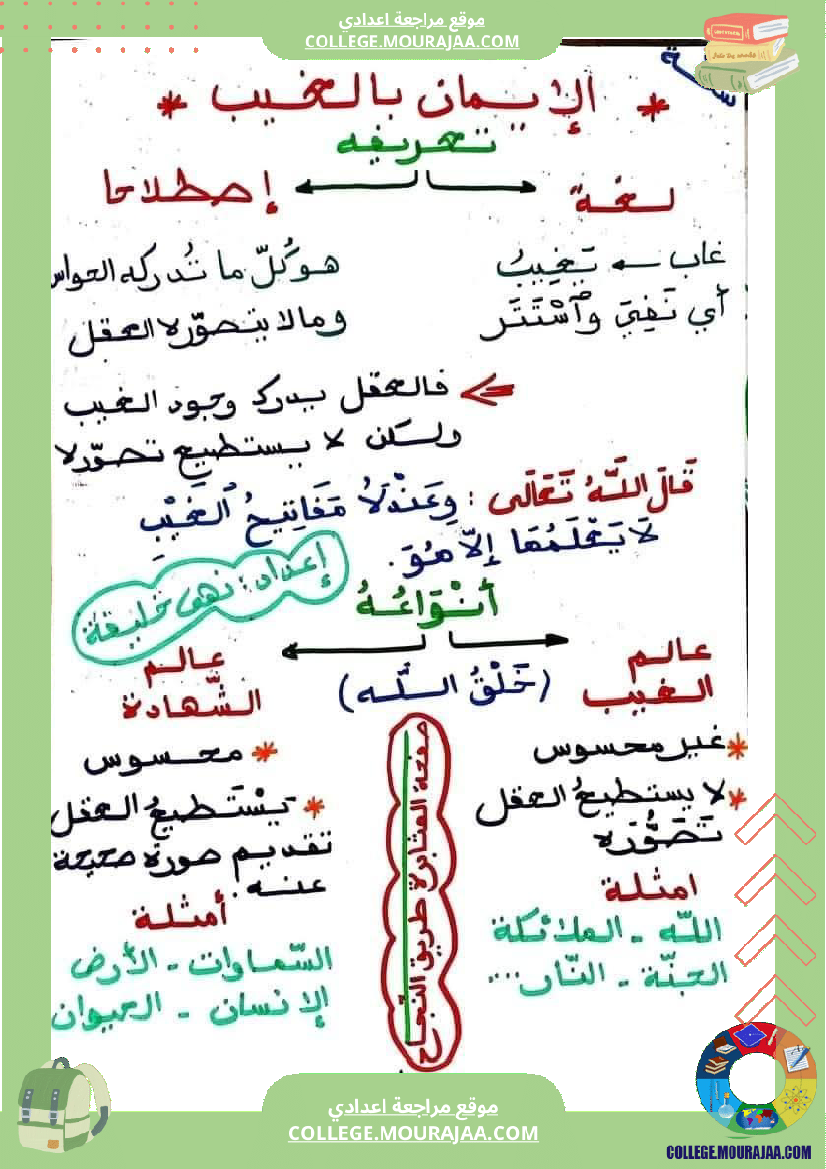 موقع مراجعة اعدادي
COLLEGE.MOURAJAA.COM
* الإيمان بالغيب *
تعريفه
لغة
إصطلاحا
غاب ← تَغِيبُ
أي خَفِيَ وٱسْتَتَر
هو كُلّ ما تُدركه الحواس
وما لا يتصوّره العقل
فالعقل يدرك وجود الغيب
ولكن لا يستطيع تصوّره
قَالَ اللَّهُ تَعَالَى : وَعَنْدَهُ مَفَاتِيحُ ٱلغَيْبِ
لَا يَعْلَمُهَا إِلاّ هُوَ.
إعداد: نهى خليفة
أنْوَاعُهُ
(خَلْقُ اللَّه)
عالم
الغيب
* غير محسوس
* لا يستطيعُ العقل
تَصَوُّرَه
امثلة
اللّه - الملائكة
الجنّة - النّار...
عالم
الشّهادة
* محسوس
* يَسْتَطيعُ العقل
تقديم صورة
عنه.
أمثلة
السّماوات - الأرض
الإنسان - الحيوان
صفحة المثابرة طريق النّجاح
موقع مراجعة اعدادي
COLLEGE.MOURAJAA.COM
COLLEGE.MOURAJAA.COM